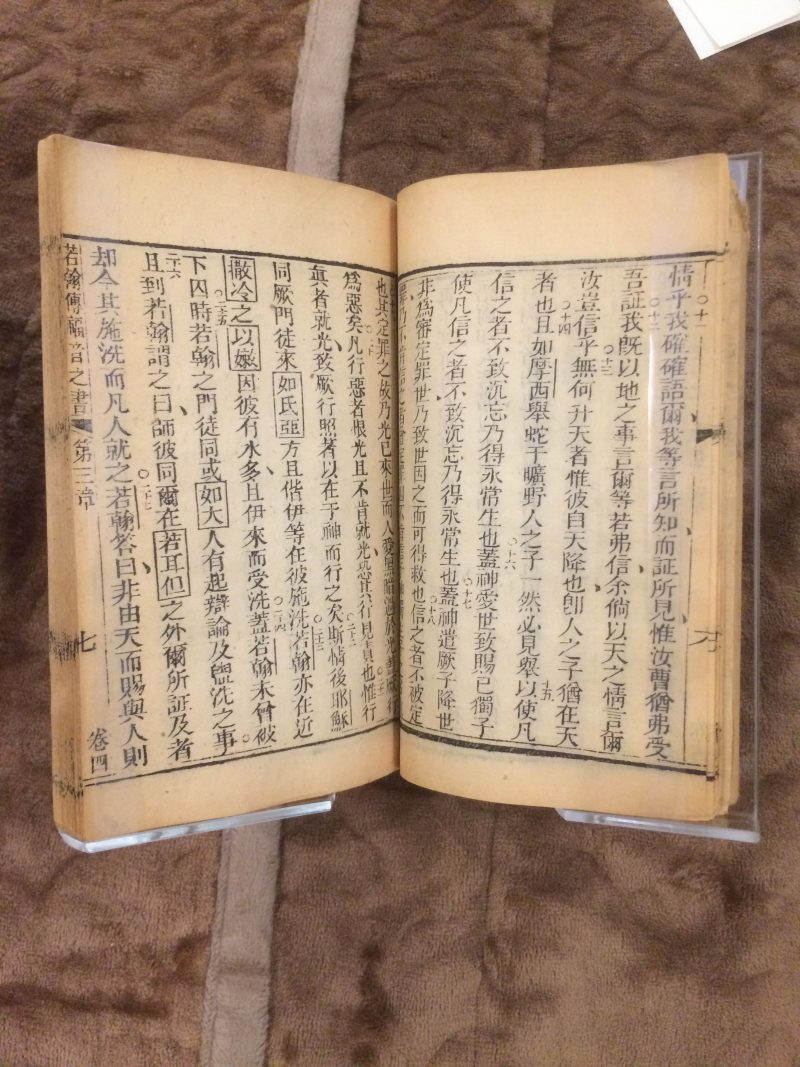 情乎我確確語爾我等言所知而証所見惟汝曹猶弗受
吾証我既以地之事言爾等若弗信余倘以天之情言爾
汝豈信乎無何升天者惟彼自天降也卽人之子猶在天
者也且如摩西舉蛇于曠野人之子一然必見舉以使凡
信之者不致沉忘乃得永常生也蓋神愛世致賜已獨子
使凡信之者不致沉忘乃得永常生也蓋神遣厥子降世
非爲審定罪世乃致世因之而可得救也信之者不被定
也其定罪之故乃光已來世而人愛
爲惡矣凡行惡者恨光且不肯就光恐其行見責也惟行
眞者就光致厥行照著以在于神而行之矣斯情後耶穌
同厥門徒來如氐亞方且偕伊等在彼施洗若翰亦在近
撒冷之以嫩因彼有水多且伊來而受洗蓋若翰未曾被
下囚時若翰之門徒同或如大人有起辯論及盥洗之事
且到若翰謂之曰師彼同爾在若耳但之外爾所証及者
却今其施洗而凡人就之若翰答曰非由天而賜與人則
若翰傳福音之書 第三章 七 卷四